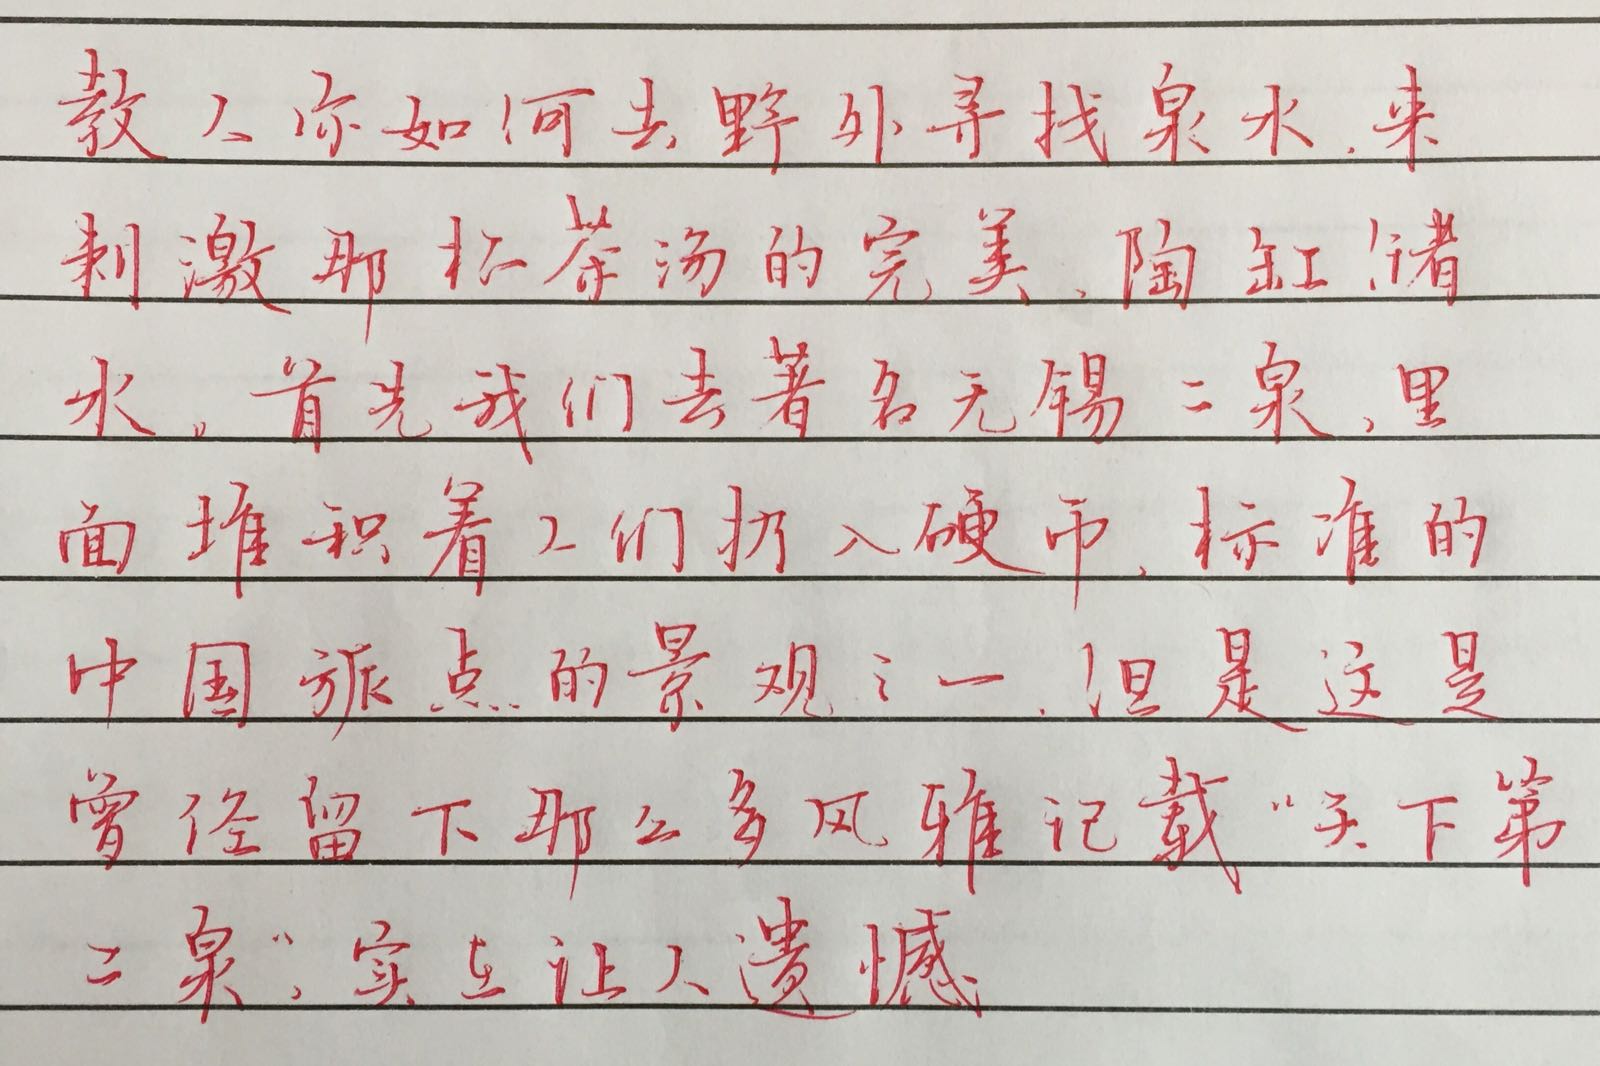 教人你如何去野外寻找泉水,来
刺激那杯茶汤的完美、陶缸储
水。首先我们去著名无锡二泉,里
面堆积着人们扔入硬币,标准的
中国旅点的景观之一,但是这是
曾经留下那么多风雅记载“天下第
二泉”,实在让人遗憾